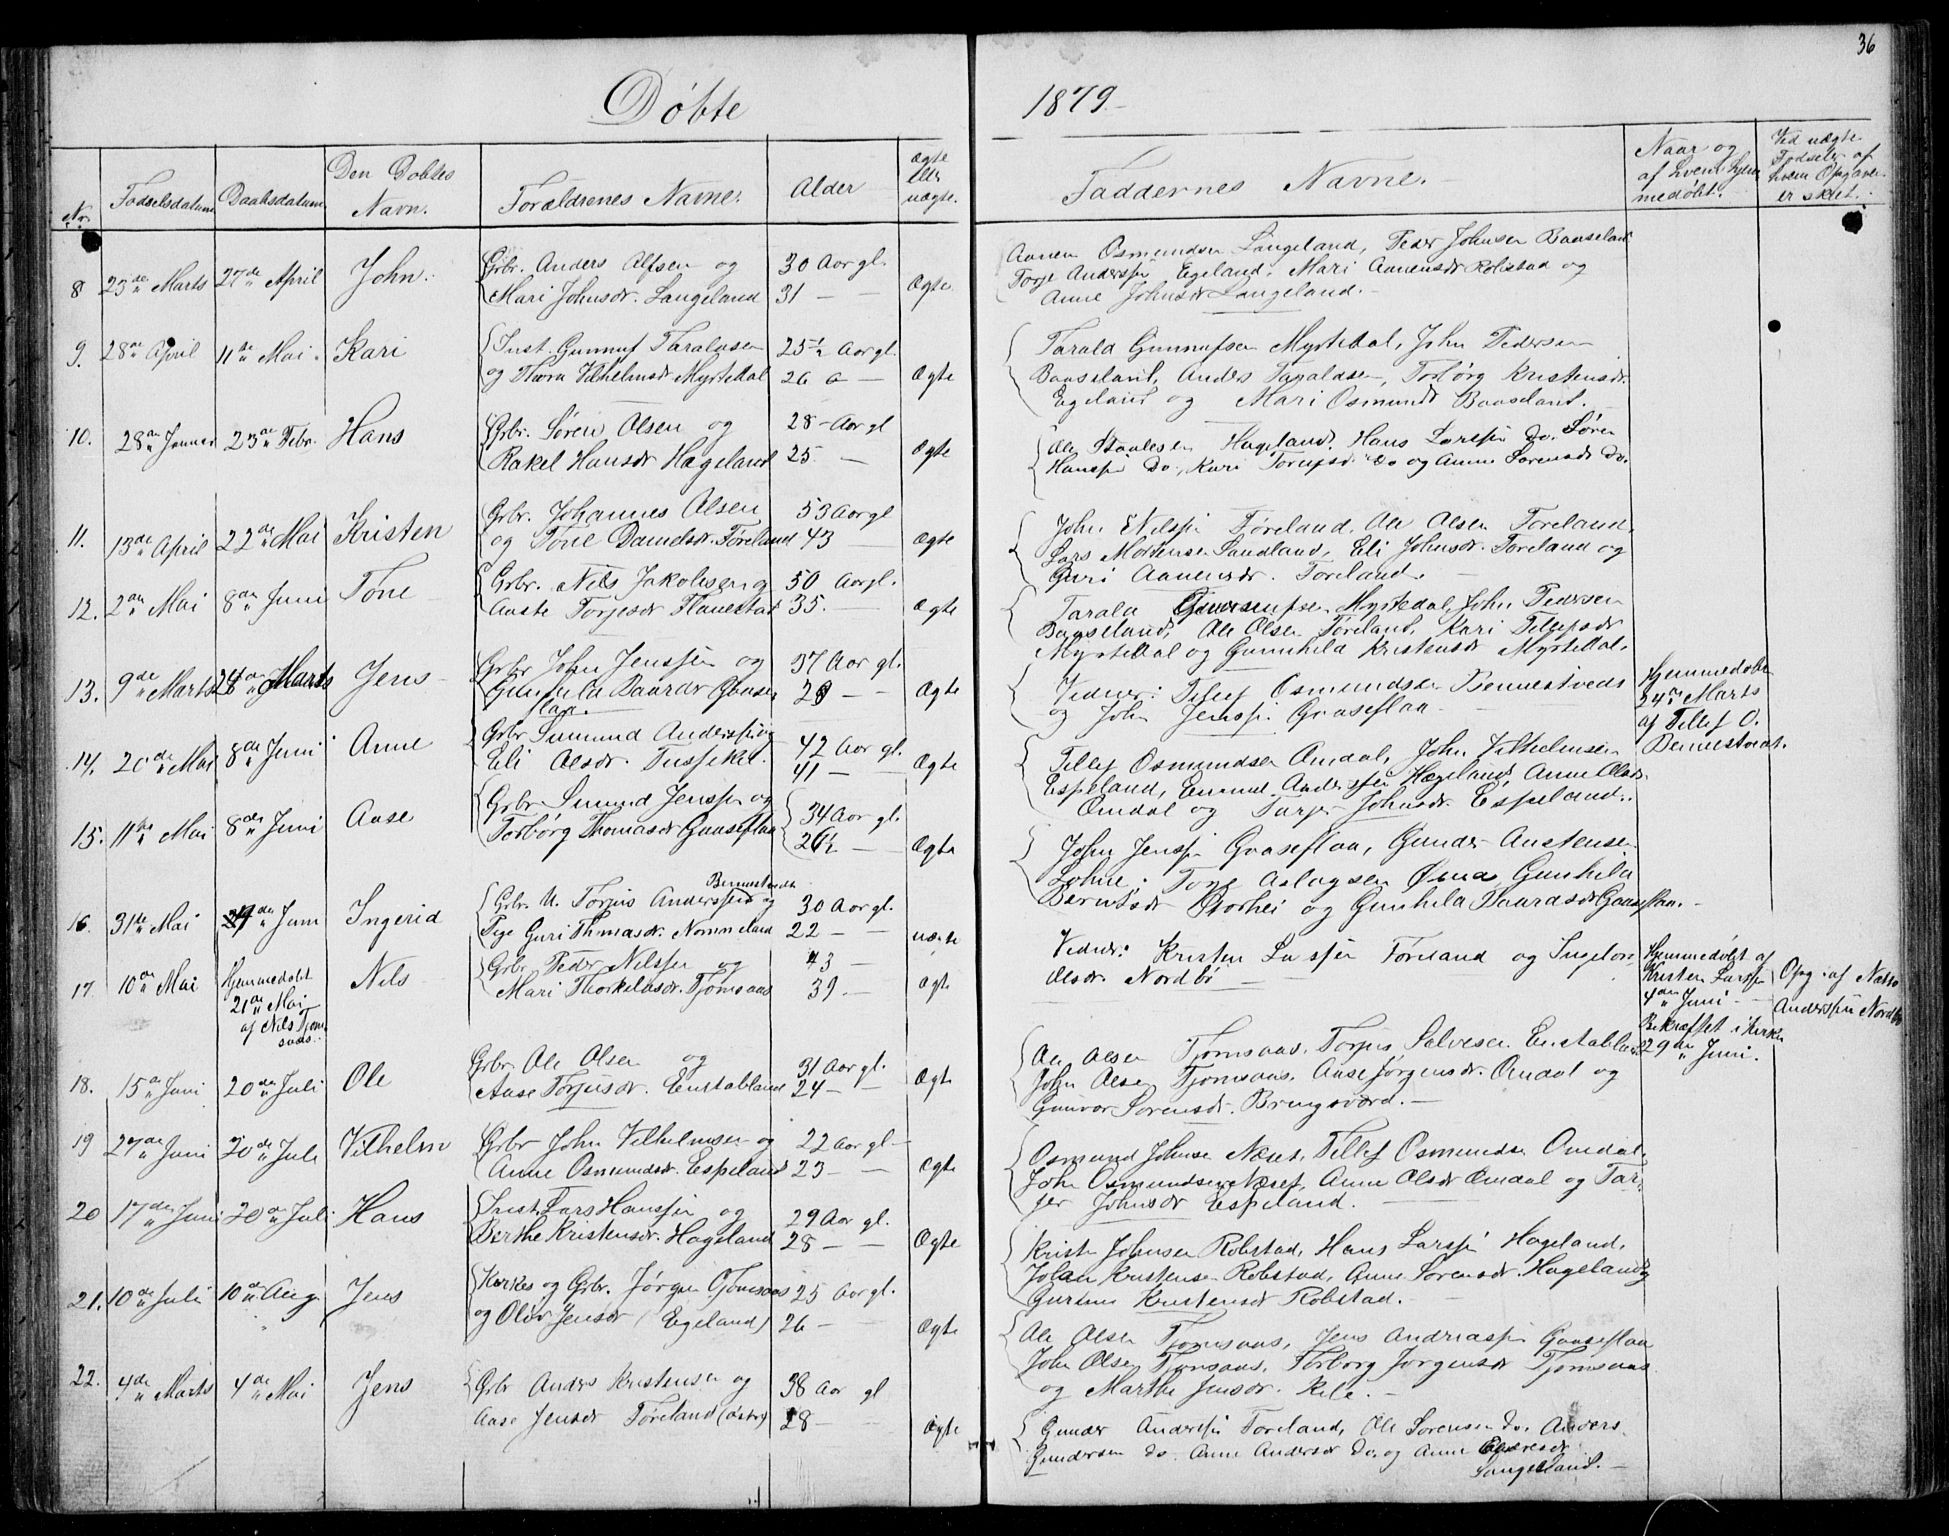 36
Døbte 1879.
Nr.
Fødselsdatum
Daabsdatum
Den Døbtes
Navn.
Forældrenes Navne.
Alder
Ægte
eller
uægte.
Faddernes Navne.
Naar og
af hvem hjem
medøbt.
Ved uægte
Fødseler af
hvem Opgaven
er skeet.
8 23de Marts 27de April John.
Gbr. Anders Alfsen og
Mari Johnsdr. Langeland
30 Aar gl.
31 — Ægte
Aanen Osmundsen Langeland, Peder Johnsen Baaseland
Torje Anderssen Egeland, Mari Aanensdr Robstad og
Anne Johnsdr Langeland.
9. 28de April 11te Mai. Kari
Inst. Gunnuf Taraldsen
og Thora Vilhelmsdr Myrtedal
25½ Aar gl.
26 — Ægte
Tarald Gunnufsen Myrtedal, John Pedersen
Baaseland, Anders Taraldsen, Torbørg Kristensdr.
Egeland og Mari Osmundsdr Baaseland.
10. 28de Januar 23de Febr. Hans
Gbr. Søren Olsen og
Rakel Hansdr Hægeland
28 Aar gl
25 — Ægte
Ole Staalesen Hægeland, Hans Larssen Do. Søren
Hanssen Do., Kari Do og Anne Sørensdr Do.
11. 13de April 22de Mai Kristen
Gbr. Johannes Olsen
og Tone Danielsdr. Føreland
53 Aar gl
43 — Ægte
John Nilssen Føreland, Ole Olsen Føreland,
Lars Mortensen Sandland, Eli Johnsdr. Føreland og
Guri Aanensdr. Føreland.
12. 2den Mai 8de Juni Tone
Gbr. Nils Jakobsen og
Aaste Torjesdr Flanestad
50 Aar gl.
35. Ægte
Tarald Gunnufsen Myrtedal, John Pedersen
Baaseland, Ole Olsen Føreland, Kari Tellefsdr
Myrtedal og Gunhild Kristensdr Myrtedal.
13. 9de Marts 24de Marts Jens
Gbr John Jenssen og
Gunhild Baardsdr Gaase
flaa.
37 Aar gl.
28 — Ægte
Vidner: Tellef Osmundsen Bennestvedt
og John Jenssen Gaaseflaa
Hjemmedøbt
24de Marts
af Tellef O.
Bennestvedt.
14. 20de Mai 8de Juni Anne
Gbr Emund Anderssen og
Eli Olsdr.
42 Aar gl.
41 — Ægte
Tellef Osmundsen Omdal, John Vilhelmsen
Espeland, Emund Anderssen Hægeland, Anne Olsdr
Omdal og Johnsdr. Espeland.
15. 11te Mai 8de Juni Aase
Gbr Emund Jenssen og
Torbørg Thomasdr Gaaseflaa
34 Aar gl.
26½ — Ægte
John Jenssen Gaaseflaa, Gunder Austensen
Løhne, Tone Aslagsen Gunhild
Berntsdr Storhei og Gunhild Baardsdr Gaaseflaa.
16. 31te Mai Juni Ingerid
Gbr. U. Torjus Anderssen Bennestvedt og
Pige Guri Thmasdr. Nommeland
30 Aar gl.
22 — uægte
Vidner: Kristen Larssen Føreland og
Olsdr Nordbø
Hjemmedøbt af
Kristen Larssen
4de Juni
Bekræftet i Kirken
29de Juni.
Opg. af
Anderssen Nordbø
17 10de Mai
Hjemmedøbt
21de Mai
af Nils Tjom
saas.
Nils
Gbr. Peder Nilssen og
Mari Thorkildsdr. Tjomsaas
43 —
39. — Ægte
Ole Olsen Tjomsaas, Torjus Salvesen Eenstabland
John Olsen Tjomsaas, Aase Jørgensdr. Omdal og
Gunvor Sørensdr. Bringsværd.
18. 15de Juni 20de Juli Ole
Gbr. Ole Olsen og
Aase Torjusdr. Eenstabland
31 Aar gl.
24 — Ægte
Osmund Johnsen Næset, Tellef Osmundsen Omdal,
John Osmundsen Næset, Anne Olsdr Omdal og Tar-
jer Johnsdr Espeland.
19 27de Juni 20de Juli Vilhelm
Gbr John Vilhelmsen og
Anne Osmundsdr. Espeland
22 Aar gl.
23 — Ægte
20 17de Juni 20de Juli Hans
Inst. Lars Hanssen og
Berthe Kristensdr. Hægeland
29 Aar gl.
28 — Ægte
Kristen Johnsen Robstad, Hans Larssen Hægeland,
Johan Kristensen Robstad, Anne Sørensdr. Hægeland og
Kristensdr Robstad.
21. 10de Juli 10de Aug. Jens
og Gbr. Jørgen O. Tjomsaas
og Olöv Jensdr (Egeland)
25 Aar gl.
26 — Ægte
Ole Olsen Tjomsaas, Jens Andreassen Gaaseflaa
John Olsen Tjomsaas, Torborg Jørgensdr Tjomsaas
og Marthe Jensdr. Kile.
22. 4de Marts 4de Mai Jens
Gbr Anders Kristensen og
Aase Jensdr Føreland (østre)
38 Aar gl
28 — Ægte
Gunder Anderssen Føreland, Ole Sørensen Do, Anders
Gundersen Do. Anne Andersdr Do. og Anne
Langeland.